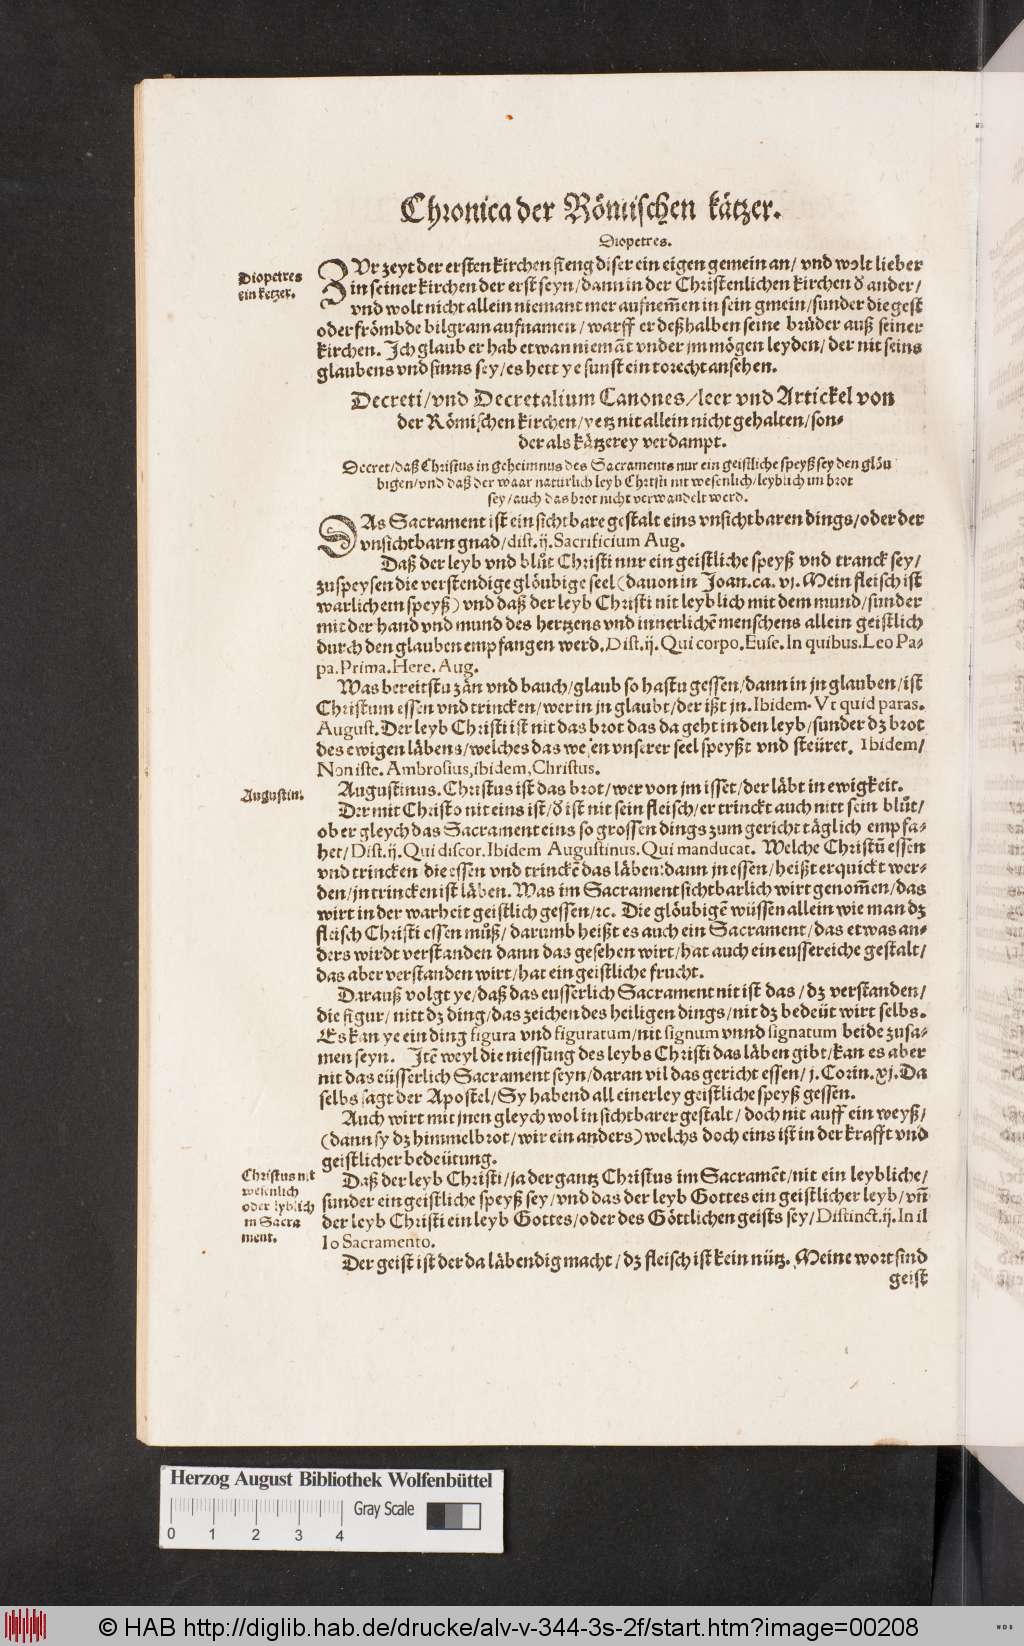 Chronica der Römischen kätzer.
Diopetres.
Diopetres
ein ketzer.
ZVr zeyt der ersten kirchen fieng diser ein eigen gemein an/ vnd wolt lieber
in seiner kirchen der erst seyn/ dann in der Christenlichen kirchen d̕ ander/
vnd wolt nicht allein niemant mer aufnem̃en in sein gmein/ sunder die gest
oder frömbde bilgram aufnamen/ warff er deßhalben seine brüder auß seiner
kirchen. Jch glaub er hab etwan niemãt vnder jm mögen leyden/ der nit seins
glaubens vnd sinns sey/ es hett ye sunst ein torecht ansehen.
Decreti/ vnd Decretalium Canones/ leer vnd Artickel von
der Römischen kirchen/ yetz nit allein nicht gehalten/ son-
der als kätzerey verdampt.
Decret/ daß Christus in geheimnus des Sacraments nur ein geistliche speyß sey den glöu
bigen/ vnd daß der waar natürlich leyb Christi nit wesenlich/ leyblich im brot
sey/ auch das brot nicht verwandelt werd.
DAs Sacrament ist ein sichtbare gestalt eins vnsichtbaren dings/ oder der
vnsichtbarn gnad/ dist. ij. Sacrificium Aug.
Daß der leyb vnd blůt Christi nur ein geistliche speyß vnd tranck sey/
zuspeysen die verstendige glöubige seel (dauon in Joan. ca. vj. Mein fleisch ist
warlich ein speyß) vnd daß der leyb Christi nit leyblich mit dem mund/ sunder
mit der hand vnd mund des hertzens vnd innerlichẽ menschens allein geistlich
durch den glauben empfangen werd. Dist. ij. Qui corpo. Euse. In quibus. Leo Pa-
pa. Prima. Here. Aug.
Was bereitstu zän vnd bauch/ glaub so hastu gessen/ dann in jn glauben/ ist
Christum essen vnd trincken/ wer in jn glaubt/ der ißt jn. Ibidem. Vt quid paras.
August. Der leyb Christi ist nit das brot das da geht in den leyb/ sunder dz brot
des ewigen läbens/ welches das wesen vnserer seel speyßt vnd steüret. Ibidem/
Non iste. Ambrosius, ibidem, Christus.
Augustin.
Augustinus. Christus ist das brot/ wer von jm isset/ der läbt in ewigkeit.
Der mit Christo nit eins ist/ d̕ ist nit sein fleisch/ er trinckt auch nitt sein blůt/
ob er gleych das Sacrament eins so grossen dings zum gericht täglich empfa-
het/ Dist. ij. Qui discor. Ibidem Augustinus. Qui manducat. Welche Christũ essen
vnd trincken die essen vnd trinckẽ das läben: dann jn essen/ heißt erquickt wer-
den/ jn trincken ist läben. Was im Sacrament sichtbarlich wirt genom̃en/ das
wirt in der warheit geistlich gessen/ ꝛc. Die glöubigẽ wüssen allein wie man dz
fleisch Christi essen můß/ darumb heißt es auch ein Sacrament/ das etwas an-
ders wirdt verstanden dann das gesehen wirt/ hat auch ein eussereiche gestalt/
das aber verstanden wirt/ hat ein geistliche frucht.
Darauß volgt ye/ daß das eusserlich Sacrament nit ist das/ dz verstanden/
die figur/ nitt dz ding/ das zeichen des heiligen dings/ nit dz bedeüt wirt selbs.
Es kan ye ein ding figura vnd figuratum/ nit signum vnnd signatum beide zusa-
men seyn. Jtẽ weyl die niessung des leybs Christi das läben gibt/ kan es aber
nit das eüsserlich Sacrament seyn/ daran vil das gericht essen/ j. Corin. xj. Da
selbs sagt der Apostel/ Sy habend all einerley geistliche speyß gessen.
Auch wirt mit jnen gleych wol in sichtbarer gestalt/ doch nit auff ein weyß/
(dann sy dz himmelbrot/ wir ein anders) welchs doch eins ist in der krafft vnd
geistlicher bedeütung.
Christus nit
wesenlich
oder leyblich
im Sacra
ment.
Daß der leyb Christi/ ja der gantz Christus im Sacramẽt/ nit ein leybliche/
sunder ein geistliche speyß sey/ vnd das der leyb Gottes ein geistlicher leyb/ vñ
der leyb Christi ein leyb Gottes/ oder des Göttlichen geists sey/ Distinct. ij. In il
lo Sacramento.
Der geist ist der da läbendig macht/ dz fleisch ist kein nütz. Meine wort sind
geist
Herzog August Bibliothek Wolfenbüttel
Gray Scale
0 1 2 3 4
© HAB http://diglib.hab.de/drucke/alv-v-344-3s-2f/start.htm?image=00208